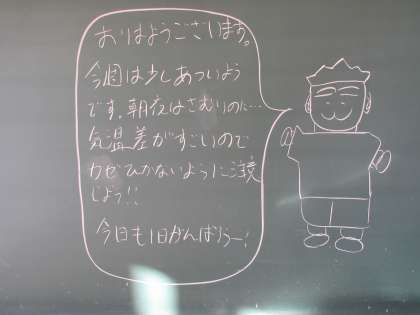 おはようございます。
今週は少しあついよう
です。朝夜はさむいのに…
気温差がすごいので
カゼひかないように注意
しよう!!
今日も1日がんばろうー!